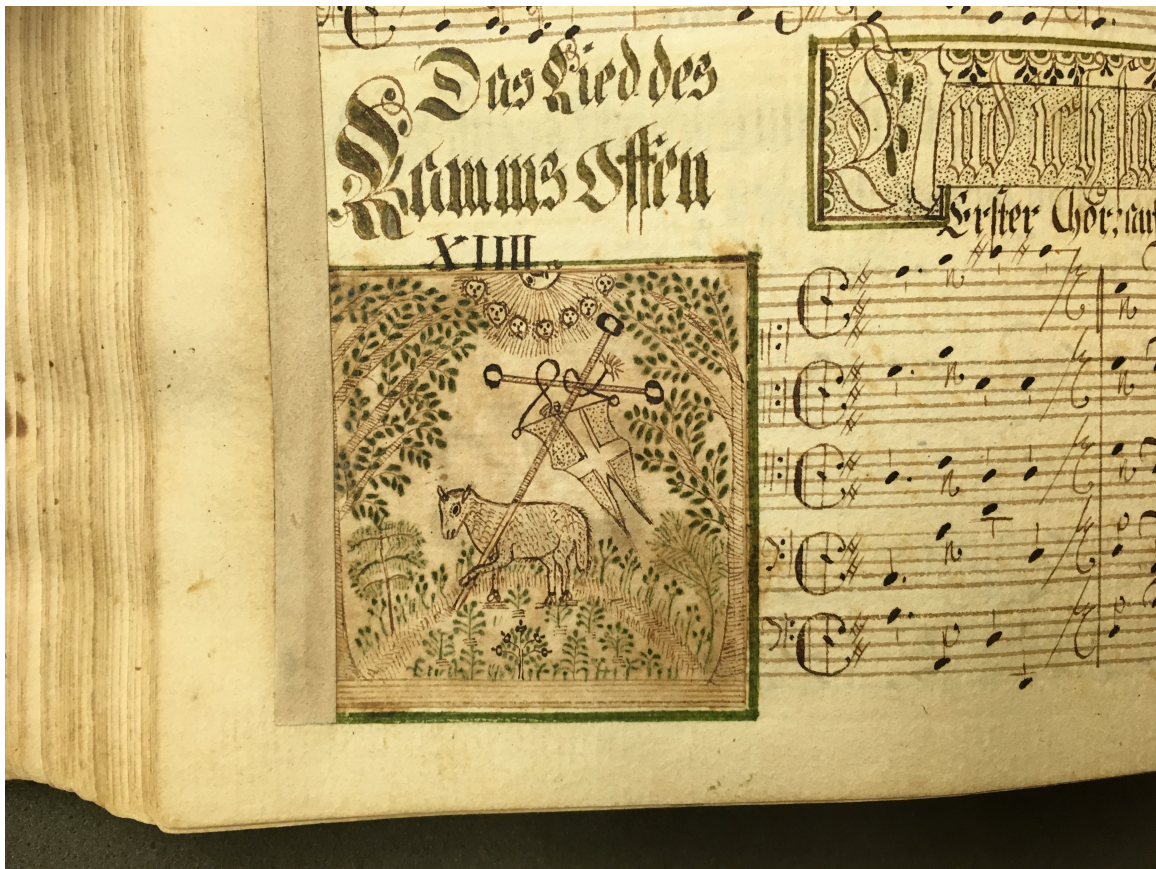 Das Lied des
Lamms Offen
XIIII..
Und ich
Erster Chor